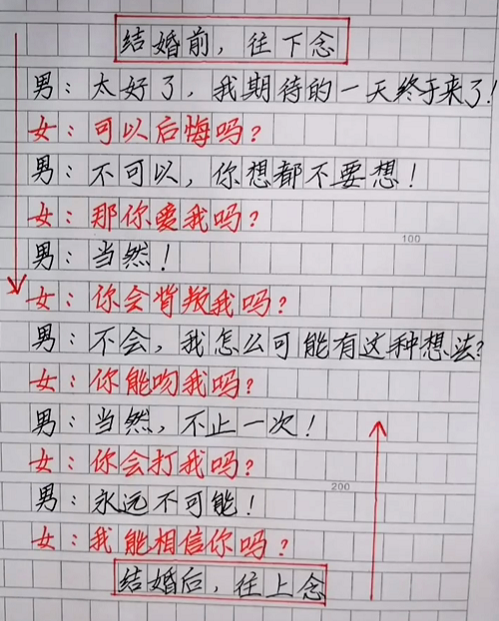 结婚前，往下念
男：太好了，我期待的一天终于来了！
女：可以后悔吗？
男：不可以，你想都不要想！
女：那你爱我吗？
100
男：当然！
女：你会背叛我吗？
男：不会，我怎么可能有这种想法？
女：你能吻我吗？
男：当然，不止一次！
女：你会打我吗？
200
男：永远不可能！
女：我能相信你吗？
结婚后，往上念